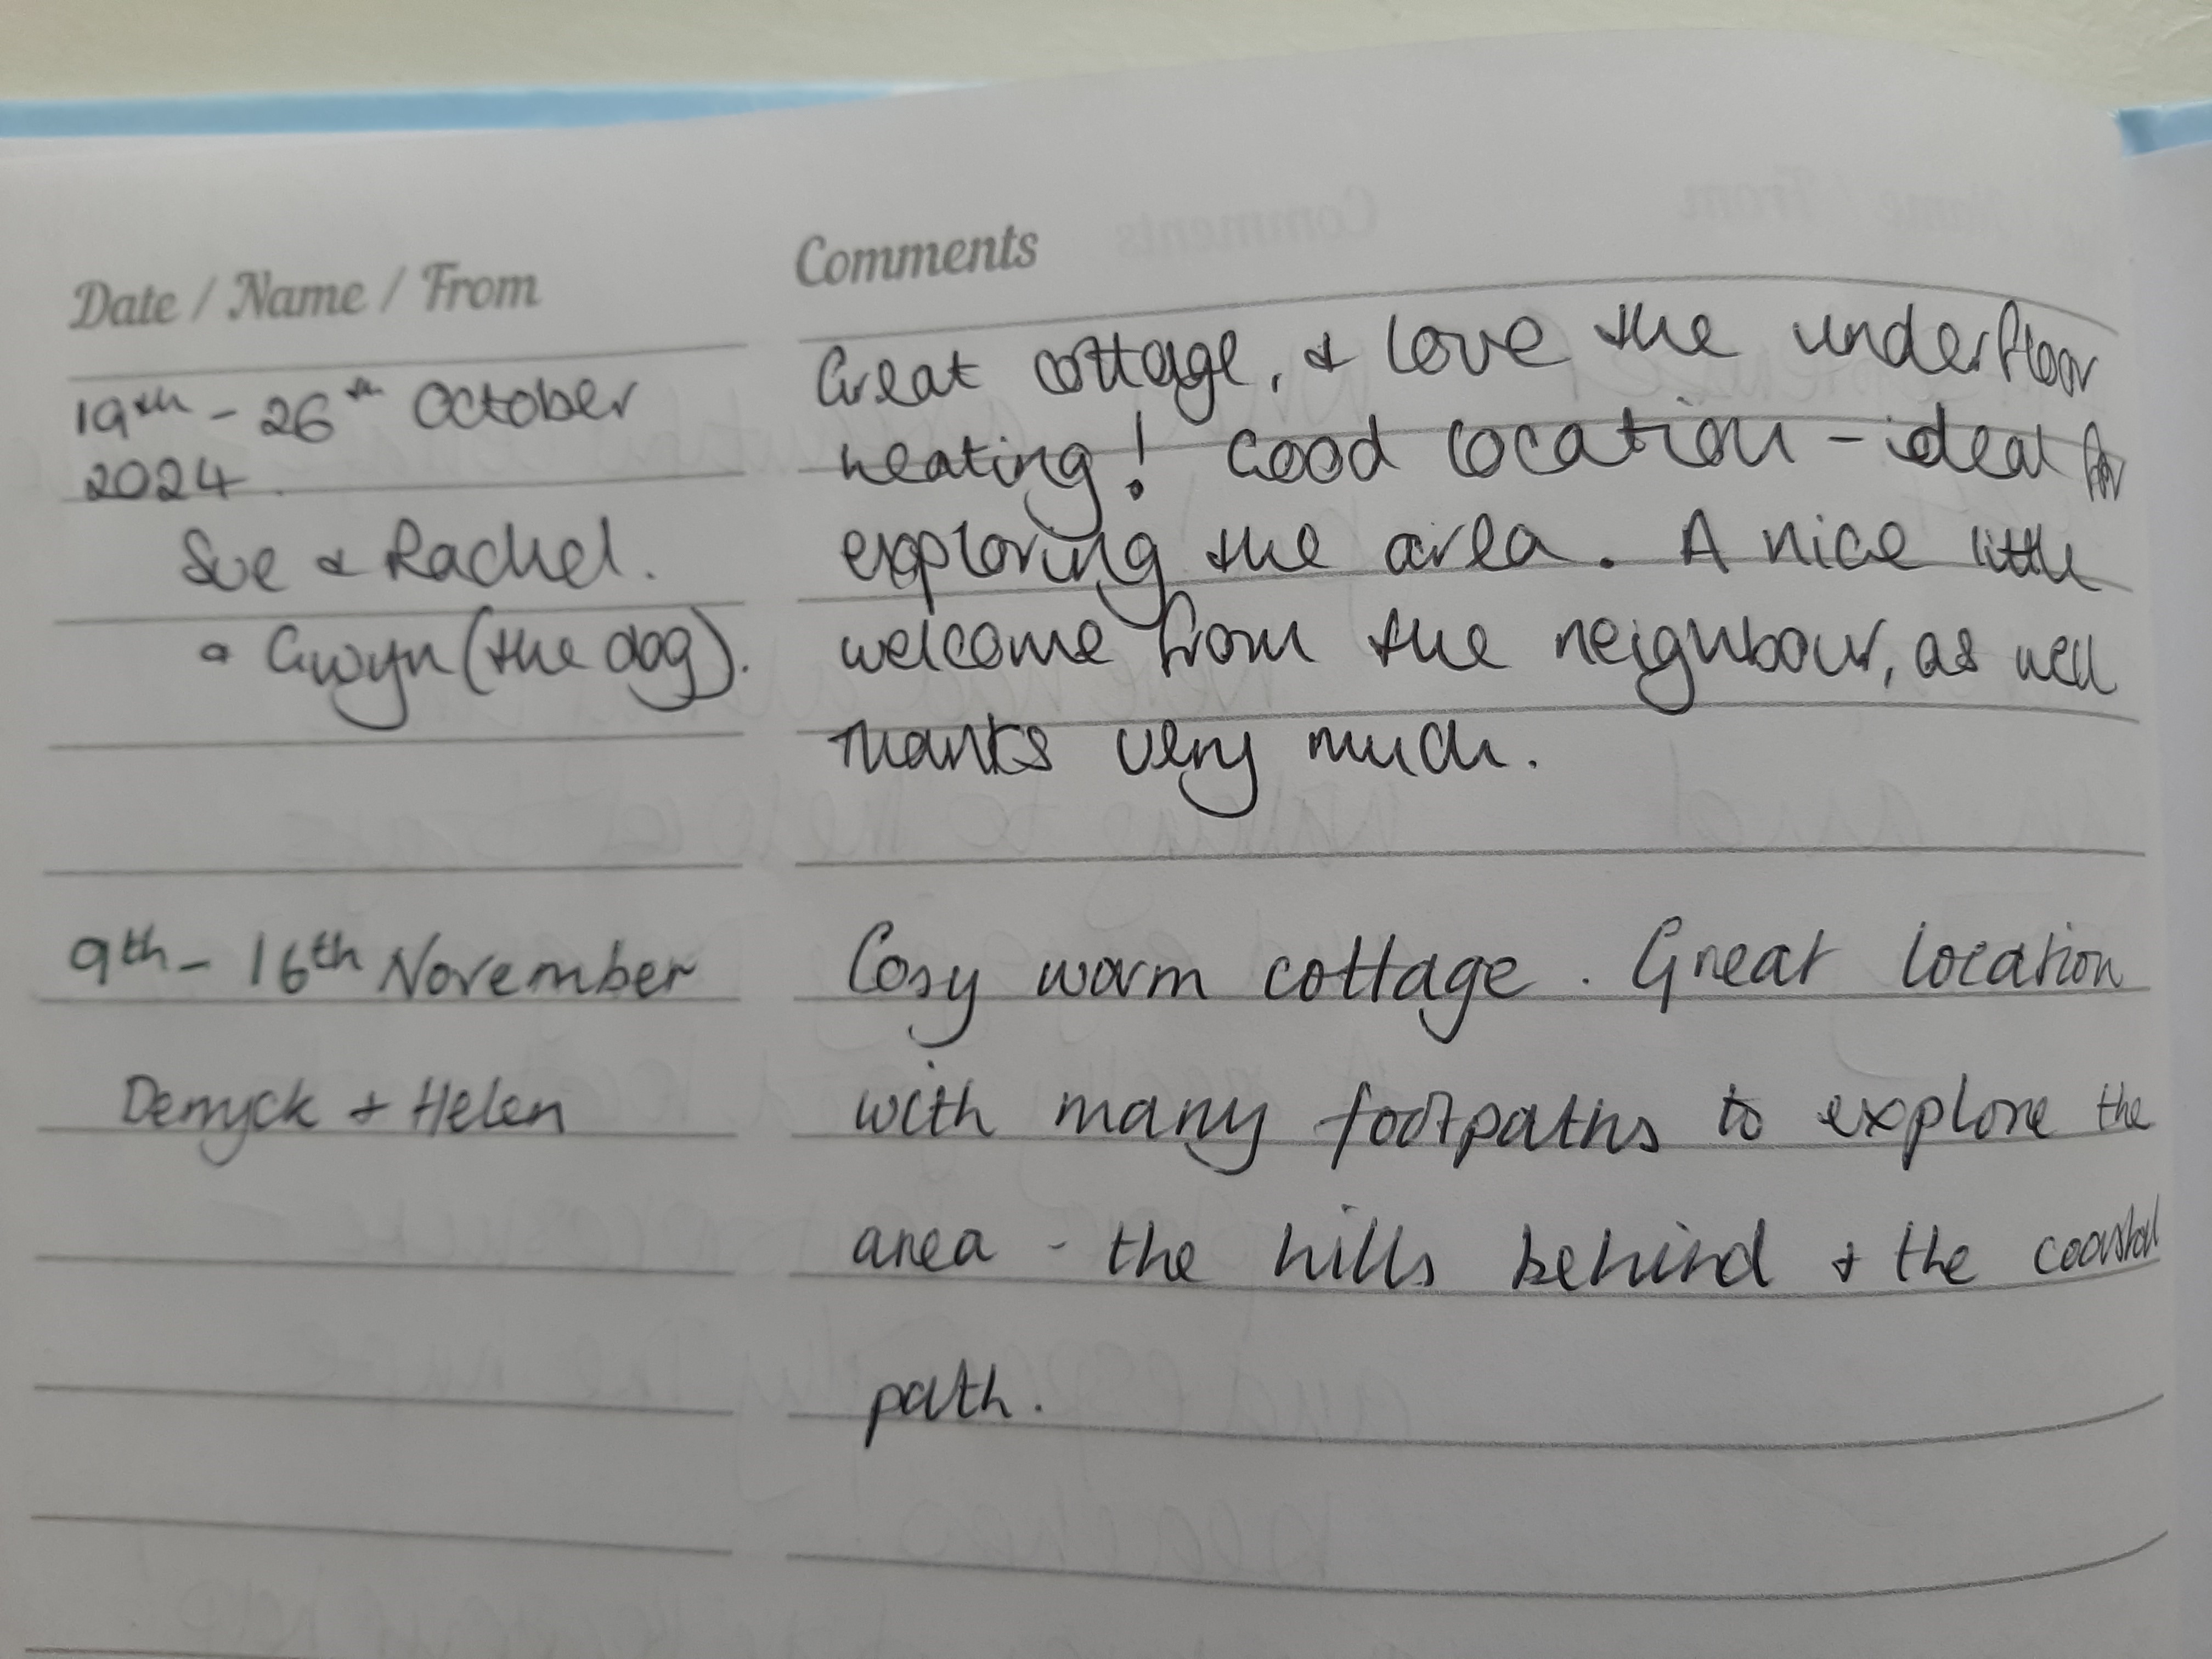 Date / Name / From
Comments
19th - 26th October
2024.
Sue & Rachel.
& Gwyn (the dog).
Great cottage, & love the underfloor
heating! Good location - ideal for
exploring the area. A nice little
welcome from the neighbour, as well
Thanks very much.
9th - 16th November
Derryck + Helen
Cosy warm cottage. Great location
with many footpaths to explore the
area - the hills behind + the coastal
path.